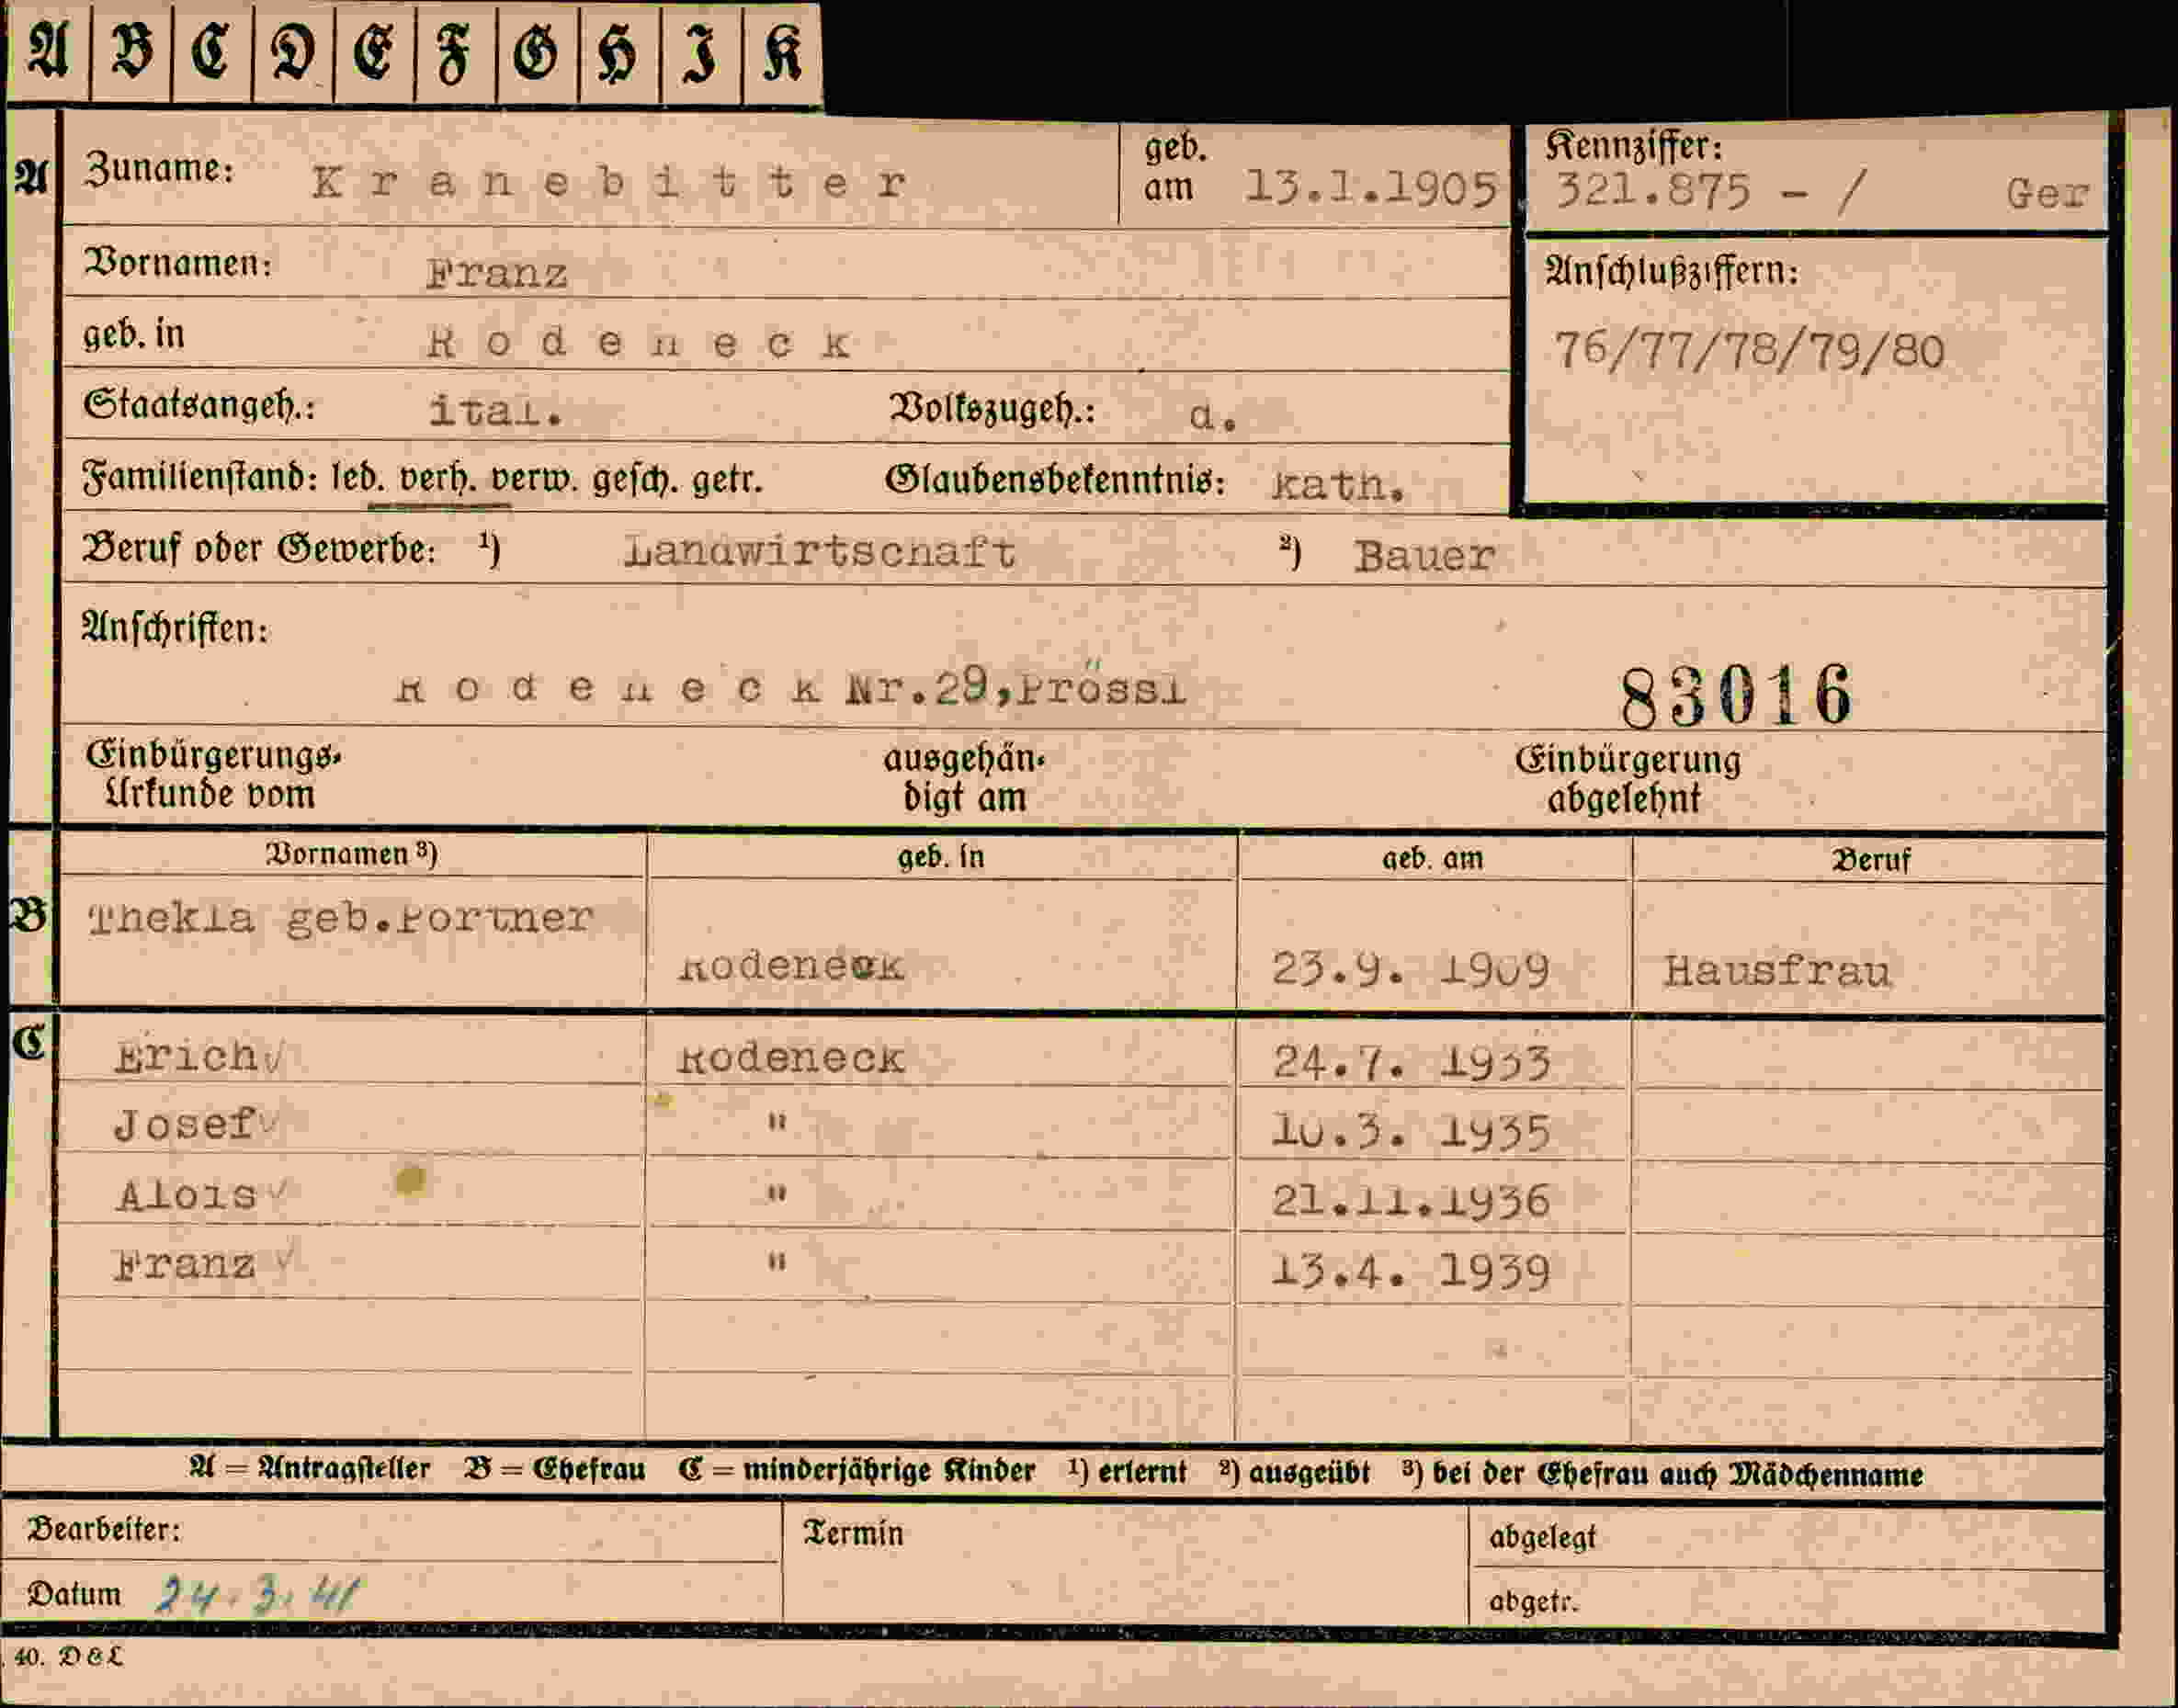 A B C D E F G H I K
A Zuname: Kranebitter geb. am 13.1.1905 Kennziffer: 321.875 - / Ger
Vornamen: Franz Anschlußziffern:
geb. in Rodeneck 76/77/78/79/80
Staatsangeh.: ital. Volkszugeh.: d.
Familienstand: led. verh. verw. gesch. getr. Glaubensbekenntnis: kath.
Beruf oder Gewerbe: ¹) Landwirtschaft ²) Bauer
Anschriften:
Rodeneck Nr.29,Prössl 83016
Einbürgerungs-Urkunde vom ausgehändigt am Einbürgerung abgelehnt
Vornamen ³) geb. in geb. am Beruf
B Thekla geb.Portner
Rodeneck 23.9. 1909 Hausfrau
C Erich√ Rodeneck 24.7. 1933
Josef√ " 10.3. 1935
Alois√ " 21.11.1936
Franz √ " 13.4. 1939
A = Antragsteller B = Ehefrau C = minderjährige Kinder ¹) erlernt ²) ausgeübt ³) bei der Ehefrau auch Mädchenname
Bearbeiter: Termin abgelegt
Datum 24.3.41 abgetr.
40. D&L